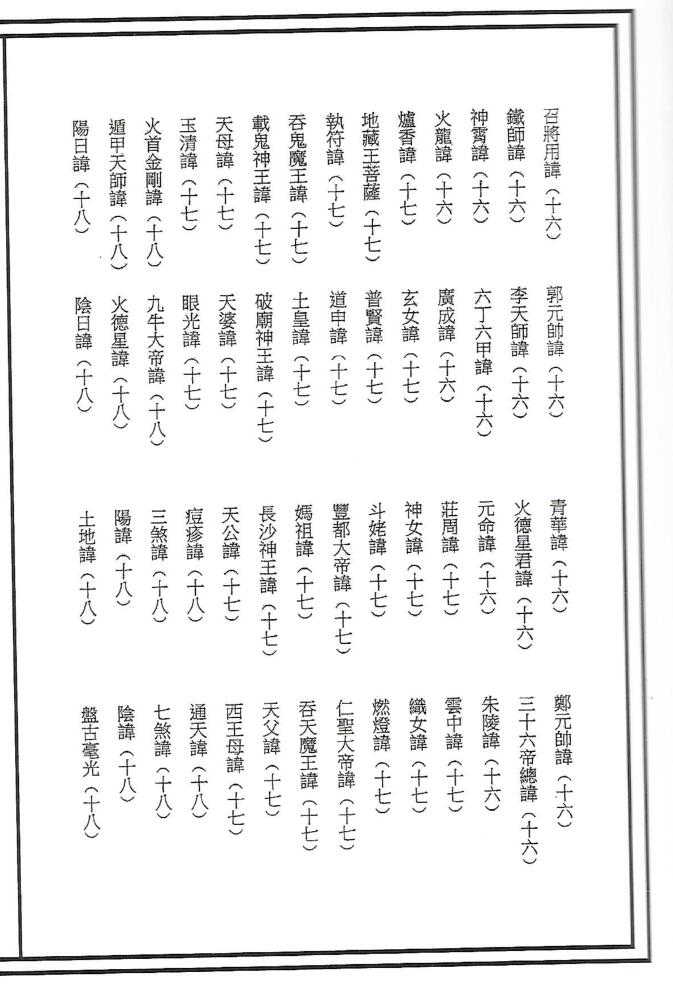 召將用諱（十六） 郭元帥諱（十六） 青華諱（十六） 鄭元帥諱（十六）
鐵師諱（十六） 李天師諱（十六） 火德星君諱（十六） 三十六帝總諱（十六）
神霄諱（十六） 六丁六甲諱（十六） 元命諱（十六） 朱陵諱（十六）
火龍諱（十六） 廣成諱（十六） 莊周諱（十七） 雲中諱（十七）
爐香諱（十七） 玄女諱（十七） 神女諱（十七） 織女諱（十七）
地藏王菩薩（十七） 普賢諱（十七） 斗姥諱（十七） 燃燈諱（十七）
執符諱（十七） 道申諱（十七） 豐都大帝諱（十七） 仁聖大帝諱（十七）
吞鬼魔王諱（十七） 土皇諱（十七） 媽祖諱（十七） 吞天魔王諱（十七）
載鬼神王諱（十七） 破廟神王諱（十七） 長沙神王諱（十七） 天父諱（十七）
天母諱（十七） 天婆諱（十七） 天公諱（十七） 西王母諱（十七）
玉清諱（十七） 眼光諱（十七） 痘疹諱（十八） 通天諱（十八）
火首金剛諱（十八） 九牛大帝諱（十八） 三煞諱（十八） 七煞諱（十八）
遁甲天師諱（十八） 火德星諱（十八） 陽諱（十八） 陰諱（十八）
陽日諱（十八） 陰日諱（十八） 土地諱（十八） 盤古毫光（十八）